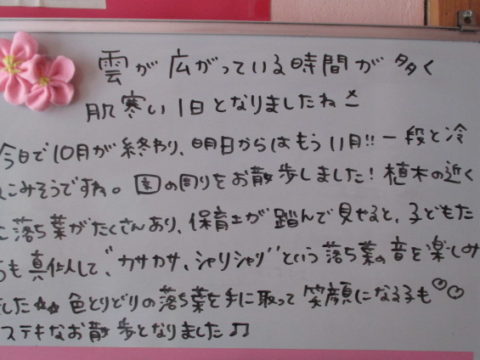 雲が広がっている時間が多く
肌寒い1日となりましたね
今日で10月が終わり、明日からはもう11月!!一段と冷
えこみそうですね。園の周りをお散歩しました!植木の近く
に落ち葉がたくさんあり、保育士が踏んで見せると、子どもた
ちも真似して、"カサカサ、シャリシャリ"という落ち葉の音を楽しみ
ました☆☆色とりどりの落ち葉を手に取って笑顔になる子も♡♡
ステキなお散歩となりました♫